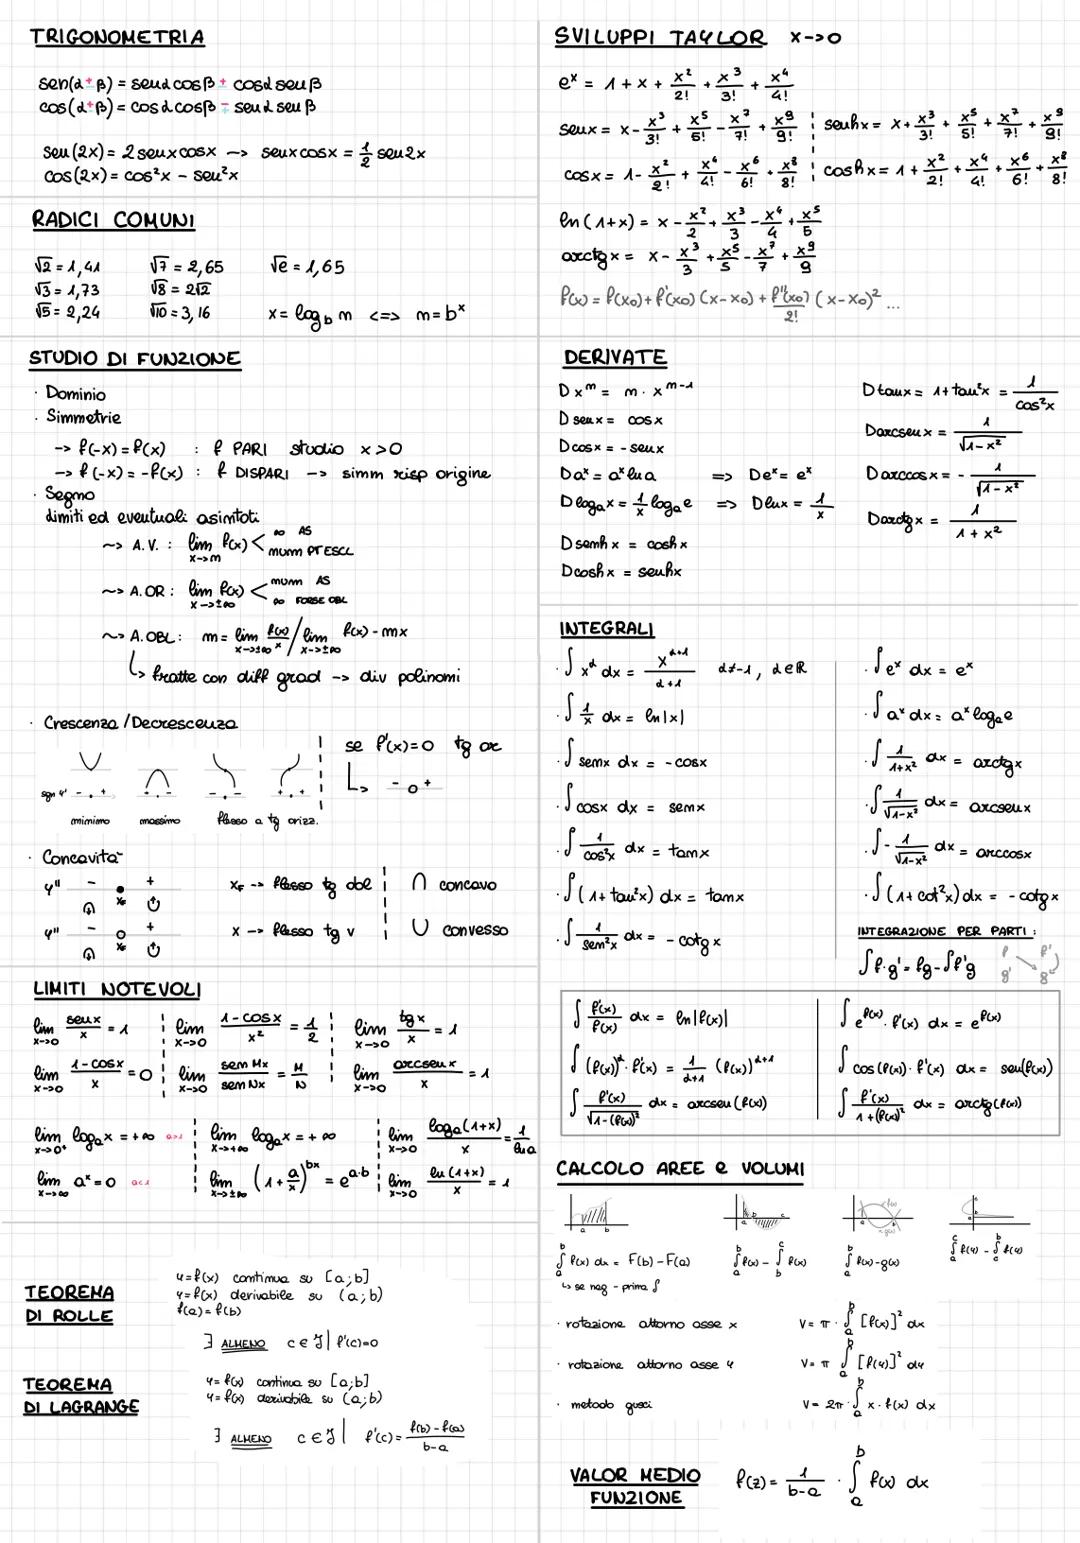 TRIGONOMETRIA
sen(α±β) = senα cosβ ± cosα senβ
cos(α±β) = cosα cosβ ∓ senα senβ
sen(2x) = 2 senx cosx –> senx cosx = 1/2 sen2x
cos(2x) = cos²x – sen²x
RADICI COMUNI
√2 = 1,41 √7 = 2,65 √e = 1,65
√3 = 1,73 √8 = 2√2
√5 = 2,24 √10 = 3,16 x = log_b m <=> m = b^x
STUDIO DI FUNZIONE
· Dominio
· Simmetrie
-> f(-x) = f(x) : f PARI studio x>0
-> f(-x) = -f(x) : f DISPARI -> simm risp origine
· Segno
Limiti ed eventuali asintoti
~> A.V. : lim x->m f(x) < ∞ AS
mumm PT ESCL
~> A.OR : lim x->±∞ f(x) < mumm AS
∞ FORSE OBL
~> A.OBL : m = lim x->±∞ f(x)/x / lim x->±∞ f(x) - mx
↳ fratte con diff grad -> div polinomi
· Crescenza / Decrescenza
se f'(x)=0 tg or
↳ - o +
sgn y' - . + + . - - . - + . +
minimo massimo flesso a tg orizz.
· Concavità
y'' - • + x_F -> flesso tg obl ∩ concavo
x_F
y'' - o + x -> flesso tg v ∪ convesso
x_F
LIMITI NOTEVOLI
lim x->0 senx/x = 1 lim x->0 (1-cosx)/x² = 1/2 lim x->0 tgx/x = 1
lim x->0 (1-cosx)/x = 0 lim x->0 sen Mx/sen Nx = M/N lim x->0 arcsenx/x = 1
lim x->0⁺ log_a x = +∞ a<1 lim x->+∞ log_a x = +∞ lim x->0 log_a(1+x)/x = 1/ln a
lim x->∞ a^x = 0 a<1 lim x->±∞ (1+a/x)^bx = e^a·b lim x->0 ln(1+x)/x = 1
TEOREMA DI ROLLE
y=f(x) continua su [a;b]
y=f(x) derivabile su (a;b)
f(a)=f(b)
∃ ALMENO c∈J | f'(c)=0
TEOREMA DI LAGRANGE
y=f(x) continua su [a;b]
y=f(x) derivabile su (a;b)
∃ ALMENO c∈J | f'(c) = (f(b)-f(a))/(b-a)
SVILUPPI TAYLOR x->0
e^x = 1 + x + x²/2! + x³/3! + x⁴/4!
senx = x - x³/3! + x⁵/5! - x⁷/7! + x⁹/9! senhx = x + x³/3! + x⁵/5! + x⁷/7! + x⁹/9!
cosx = 1 - x²/2! + x⁴/4! - x⁶/6! + x⁸/8! coshx = 1 + x²/2! + x⁴/4! + x⁶/6! + x⁸/8!
ln(1+x) = x - x²/2 + x³/3 - x⁴/4 + x⁵/5
arctgx = x - x³/3 + x⁵/5 - x⁷/7 + x⁹/9
f(x) = f(x₀) + f'(x₀)(x-x₀) + f''(x₀)/2! (x-x₀)² ...
DERIVATE
D x^m = m · x^m-1 D tanx = 1+tan²x = 1/cos²x
D senx = cosx D arcsenx = 1/√(1-x²)
D cosx = -senx
D a^x = a^x ln a => D e^x = e^x D arccosx = - 1/√(1-x²)
D log_a x = 1/x log_a e => D lnx = 1/x D arctgx = 1/(1+x²)
D semhx = coshx
D coshx = senhx
INTEGRALI
· ∫ x^α dx = x^α+1/(α+1) α≠-1, α∈R · ∫ e^x dx = e^x
· ∫ 1/x dx = ln|x| · ∫ a^x dx = a^x log_a e
· ∫ semx dx = -cosx · ∫ 1/(1+x²) dx = arctgx
· ∫ cosx dx = semx · ∫ 1/√(1-x²) dx = arcsenx
· ∫ 1/cos²x dx = tamx · ∫ - 1/√(1-x²) dx = arccosx
· ∫ (1+tan²x) dx = tamx · ∫ (1+cot²x) dx = -cotgx
· ∫ 1/sem²x dx = -cotgx
INTEGRAZIONE PER PARTI :
∫ f·g' = fg - ∫ f'g f f' g' g
∫ f'(x)/f(x) dx = ln|f(x)| ∫ e^f(x) · f'(x) dx = e^f(x)
∫ (f(x))^α · f'(x) = 1/(α+1) (f(x))^α+1 ∫ cos(f(x)) · f'(x) dx = sen(f(x))
∫ f'(x)/√(1-(f(x))²) dx = arcsen(f(x)) ∫ f'(x)/(1+(f(x))²) dx = arctg(f(x))
CALCOLO AREE e VOLUMI
a b a b c a b f(x) g(x) a b c
∫_a^b f(x) dx = F(b) - F(a) ∫_a^b f(x) - ∫_b^c f(x) ∫_a^b f(x)-g(x) ∫_a^c f(y) - ∫_c^b f(y)
↳ se neg - prima ∫
· rotazione attorno asse x V = π · ∫_a^b [f(x)]² dx
· rotazione attorno asse y V = π ∫_a^b [f(y)]² dy
· metodo gusci V = 2π · ∫_a^b x · f(x) dx
VALOR MEDIO FUNZIONE f(z) = 1/(b-a) · ∫_a^b f(x) dx